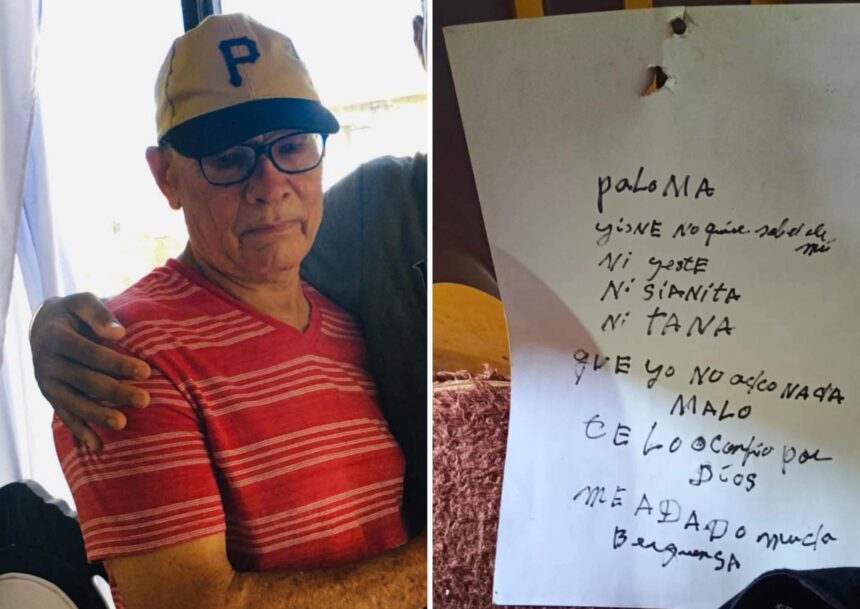 P
paLoMA
yisNE No quise saber de
mi
Ni yestE
Ni SiANitA
Ni TANA
qUE yo NO adco NAdA
MALO
tE Lo ocanfio por
Dios
ME ADADO mucha
BerguenSA